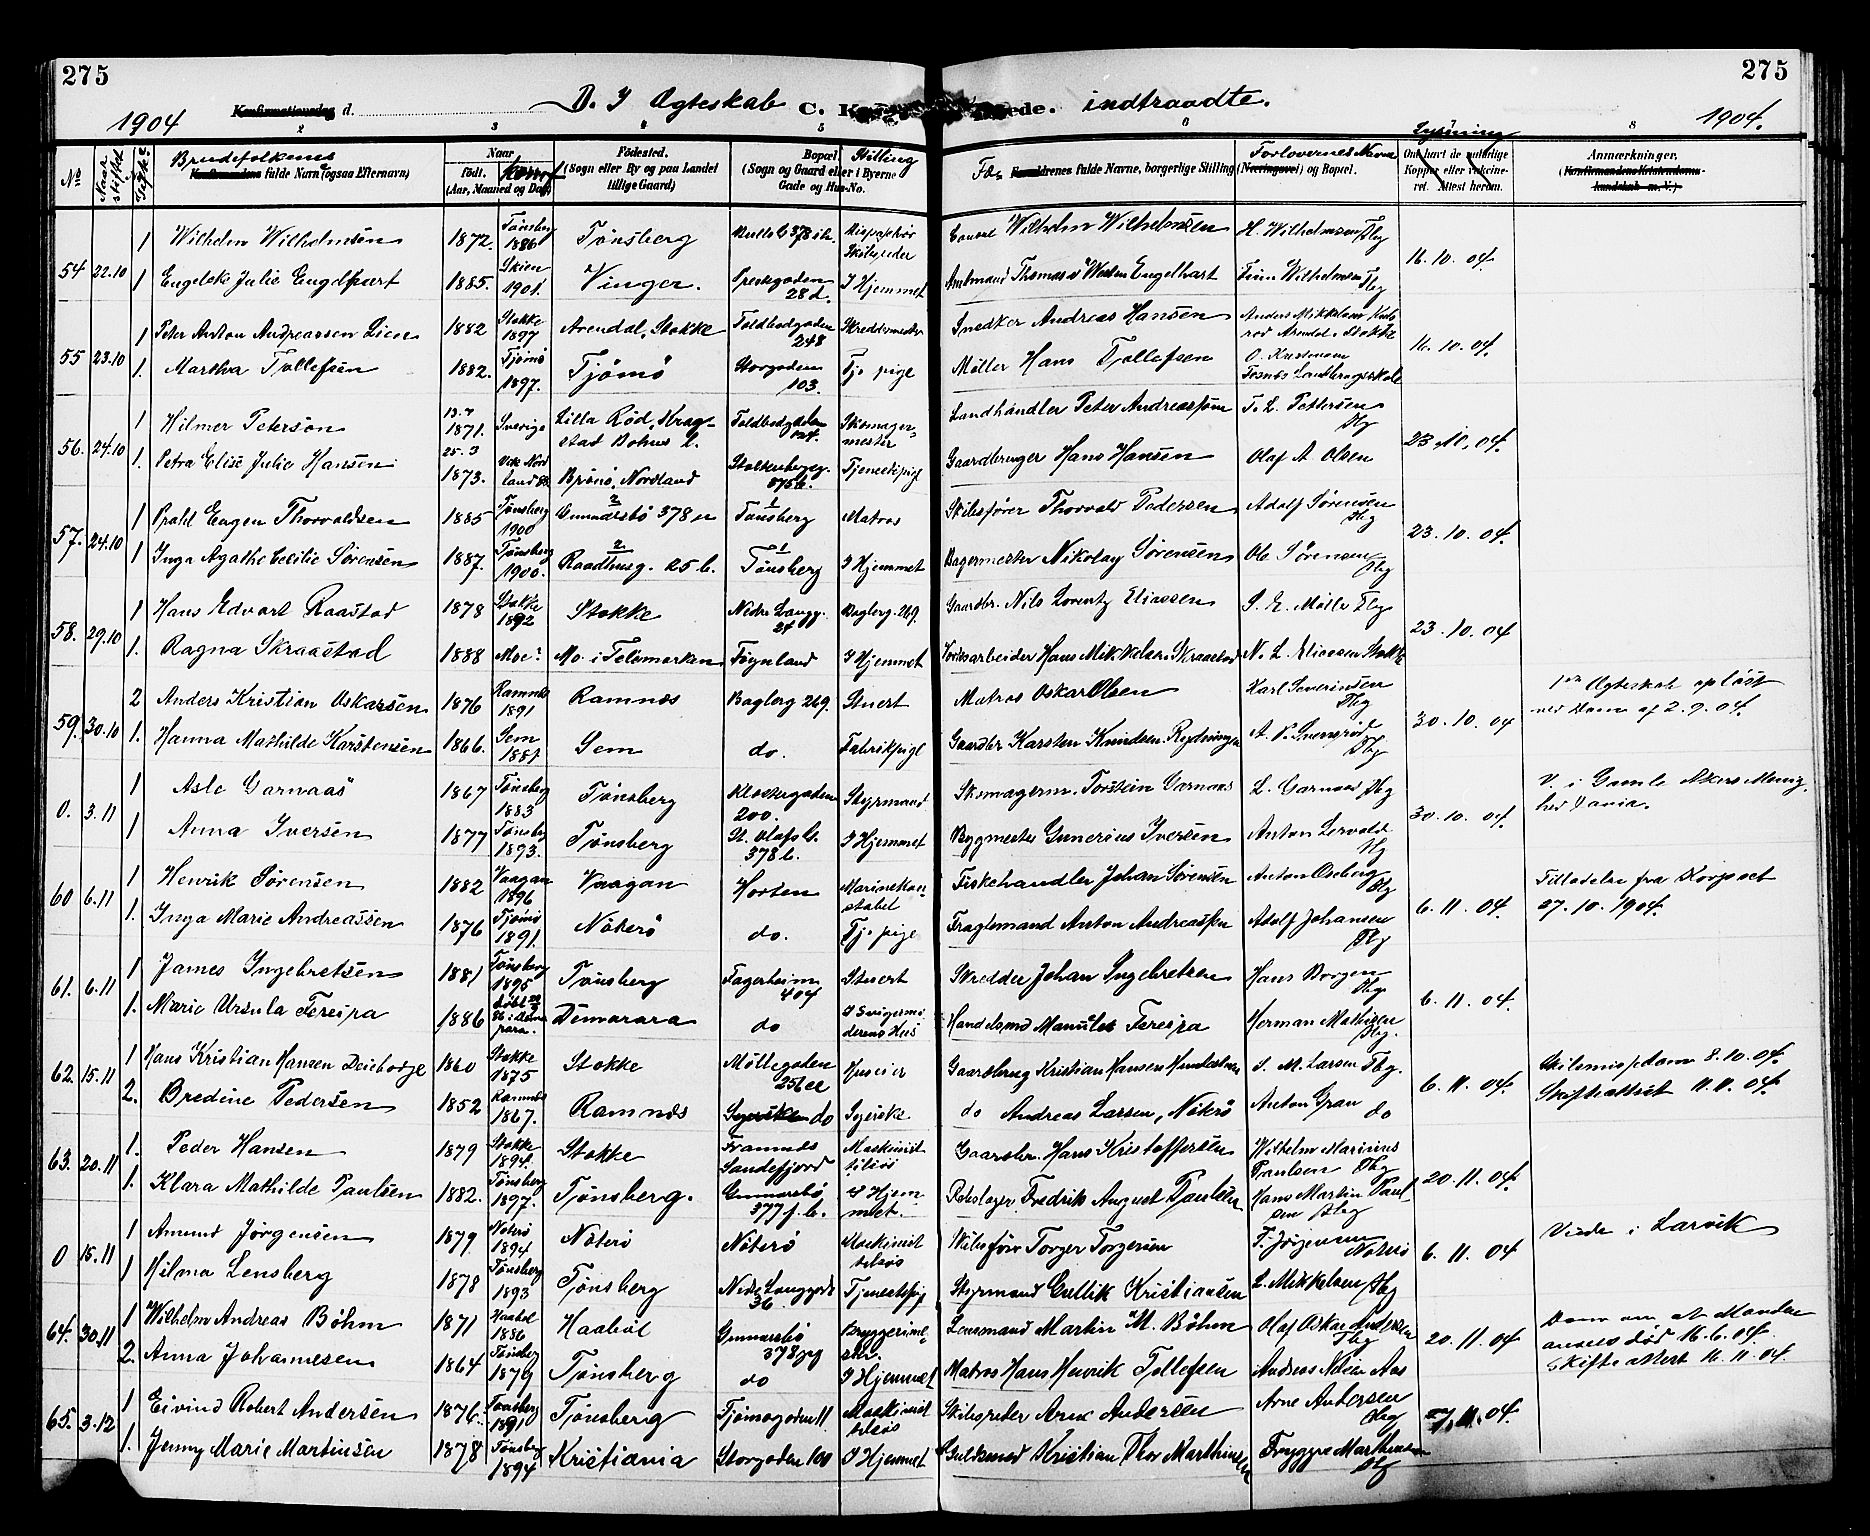 275
275
1904
Konfirmationsdag d.
D. I Ægteskab C. K
ede. indtraadte.
1904.
2 3 4 5 6 8
No
Naar viet
Brudefolkenes
Konfirmandens fulde Navn (ogsaa Efternavn)
Naar
født. konf
(Aar, Maaned og Dag)
Fødested.
(Sogn eller By og paa Landet
tillige Gaard)
Bopæl. Stilling
(Sogn og Gaard eller i Byerne
Gade og Hus-No.
Fæ Forældrenes fulde Navne, borgerlige Stilling
Forlovernes Navne
(Næringsvei) og Bopæl.
Lysning
Om havt de naturlige
Kopper eller vaksine-
ret. Attest herom.
Anmærkninger.
(Konfirmandens Kristendoms-
kundskab m. V.)
54 22.10
1 Wilhelm Wilhelmsen 1872. Tønsberg 1886 Tønsberg 378 Skibsreder Consul Wilhelm Wilhelmsen H. Wilhelmsen Tbg
1 Engelke Julie Engelhart 1885. Skien 1901. Vinger. 28 d. I Hjemmet Amtmand Thomas v Westen Engelhart Finn Wilhelmsen Tbg
16.10.04.
55 23.10
1 Peter Anton Andreassen Lien 1882 Stokke 1897 Arendal, Stokke Toldbodgaden 248 Skreddermester Snedker Andreas Hansen Anders Mikkelsen Arendal, Stokke
1. Martha Tollefsen 1882. Tjømø 1897. Tjømø Storgaden 103. Tj. pige Møller Hans Tollefsen O. Landbrugsskole
16.10.04.
56. 24.10
1 Hilmer Peterson 1871. Sverige Lilla Röd, Krag- stad Bohus l. Toldbodgaden Skomager- mester Landhandler Peter Andreasson T. L. Pettersen Tbg
1. Petra Elise Julie Hansen 25.3 1873. Vik Nordland Brønø, Nordland Stoltenbergg. 375 b. Tjenestepige Gaardbruger Hans Hansen Olaf A. Olsen
23.10.04.
57. 24.10
1 Eugen Thorvaldsen 1885 Tønsberg 1900 Gunnarsbø 378 n Tønsberg Matros Skibsfører Thorvald Pedersen Adolf Sørensen Tbg
1 Inga Agathe Cecilie Sørensen 1887. Tønsberg 1900. Raadhusg. 25 b. Tønsberg I Hjemmet Bagermester Nikolay Sørensen Ole Sørensen Tbg
23.10.04.
58. 29.10
1 Hans Edvart Raastad 1878 Stokke 1892 Stokke Nedre Langg. 24 Baglerg. 269. Gaardbr. Nils Lorentz Eliassen S. E. Møller Tbg
1. Ragna Skraastad 1888 Moe? Mo i Telemarken Føynland I Hjemmet Hans Mikkelsen Skraastad N. L. Eliassen Stokke
23.10.04
59. 30.10
2 Anders Kristian Oskarsen 1876 Ramnes 1891 Ramnæs Baglerg 269. Stuert Matros Oskar Olsen Karl Severinsen Tbg
1. Hanna Mathilde Karstensen 1866. Sem 1881 Sem do. Fabrikpige Gaardbr Karsten Knudsen Rydningen A. P. Tbg
30.10.04
1ste Ægteskab opløst
ved Dom af 2.9.04.
0. 3.11
1 Asle Garnaas 1867 Tønsberg 1883 Tønsberg Klostergaden 200. Styrmand Skomagerm. Torstein Garnaas L. Garnaas Tbg
1 Anna Iversen 1877 Tønsberg 1893. Tønsberg St. Olafs G. 378 b. I Hjemmet Bygmester Gunerius Iversen Anton Tbg
30.10.04.
V. i Gamle Akers Menig
hed
60 6.11
1 Henrik Sørensen 1882 Vaagan 1896 Vaagan Horten Marinekon- stabel Fiskehandler Johan Sørensen Anton Oseberg Tbg
1. Inga Marie Andreassen 1876 Tjømø 1891. Nøterø do. Tj. pige Fragtemand Anton Andreassen Adolf Johansen Tbg
6.11.04.
Tilladelse fra Korpset
27.10.1904.
61. 6.11
1 James Ingebretsen 1881 Tønsberg 1895 Tønsberg Fagerheim 404 Stuert Skredder Johan Ingebretsen Hans Borgen Tbg
1. Marie Ursula Fereira 1886 Demerara do I Svigermo- derens Hus Handelsmd Manuel Fereira Herman Mathisen Tbg.
6.11.04.
62. 15.11
1 Hans Kristian Hansen 1860 Stokke 1875 Stokke Møllegaden Huseier Gaardbrug Kristian Hansen S. M. Larsen Tbg.
2. Bredine Pedersen 1852 Ramnæs 1867. Ramnæs Syerske do Syerske do Andreas Larsen, Nøterø Anton Gran do
6.11.04.
8.10.04.
Skifteattest 11.11.04.
63. 20.11
1. Peder Hansen 1879 Stokke 1894. Stokke Framnæs Sandefjord Maskinist tilsøs Gaardbr. Hans Kristoffersen Wilhelm Marinius Paulsen Tbg
1. Klara Mathilde Paulsen 1882. Tønsberg 1897. Tønsberg. Gunnarsbø 377 f. b. I Hjem- met. Rebslager Fredrik August Paulsen Hans Martin Paul sen Tbg
20.11.04.
0 15.11
1 Amund Jørgensen 1879 Nøterø 1894 Nøterø Nøterø Maskinist tilsøs Skibsfører Torger Torgersen T. Jørgensen Nøterø
1 Hilma Lensberg 1878 Tønsberg 1893 Tønsberg Nedre Langgade 36 Tjenestepig Styrmand Gullik Kristiansen L. Mikkelsen Tbg
6.11.04
Viede i Larvik
64. 30.11
1 Wilhelm Andreas Bøhm 1871 Haabøl 1886 Haabøl Gunnarsbø 378 Bryggerime- ster. Lensmand Martin M. Bøhm Olaf Oskar Andersen Tbg
2. Anna Johannesen 1864 Tønsberg 1879 Tønsberg do I Hjemmet Matros Hans Henrik Tollefsen Andreas Aas
20.11.04
Dom om, at Manden
ansees død 16.6.04.
Skifteattest 16.11.04.
65. 3.12
1 Eivind Robert Andersen 1876. Tønsberg 1891 Tønsberg Tjømøgaden 11 Maskinist tilsøs Skibsreder Arne Andersen Arne Andersen Tbg
1. Jenny Marie Martinsen 1878 Tønsberg 1894 Kristiania Storgaden 100 I Hjemmet Guldsmed Kristian Thor Marthinsen Trygve Marthinsen Tbg
11.04.